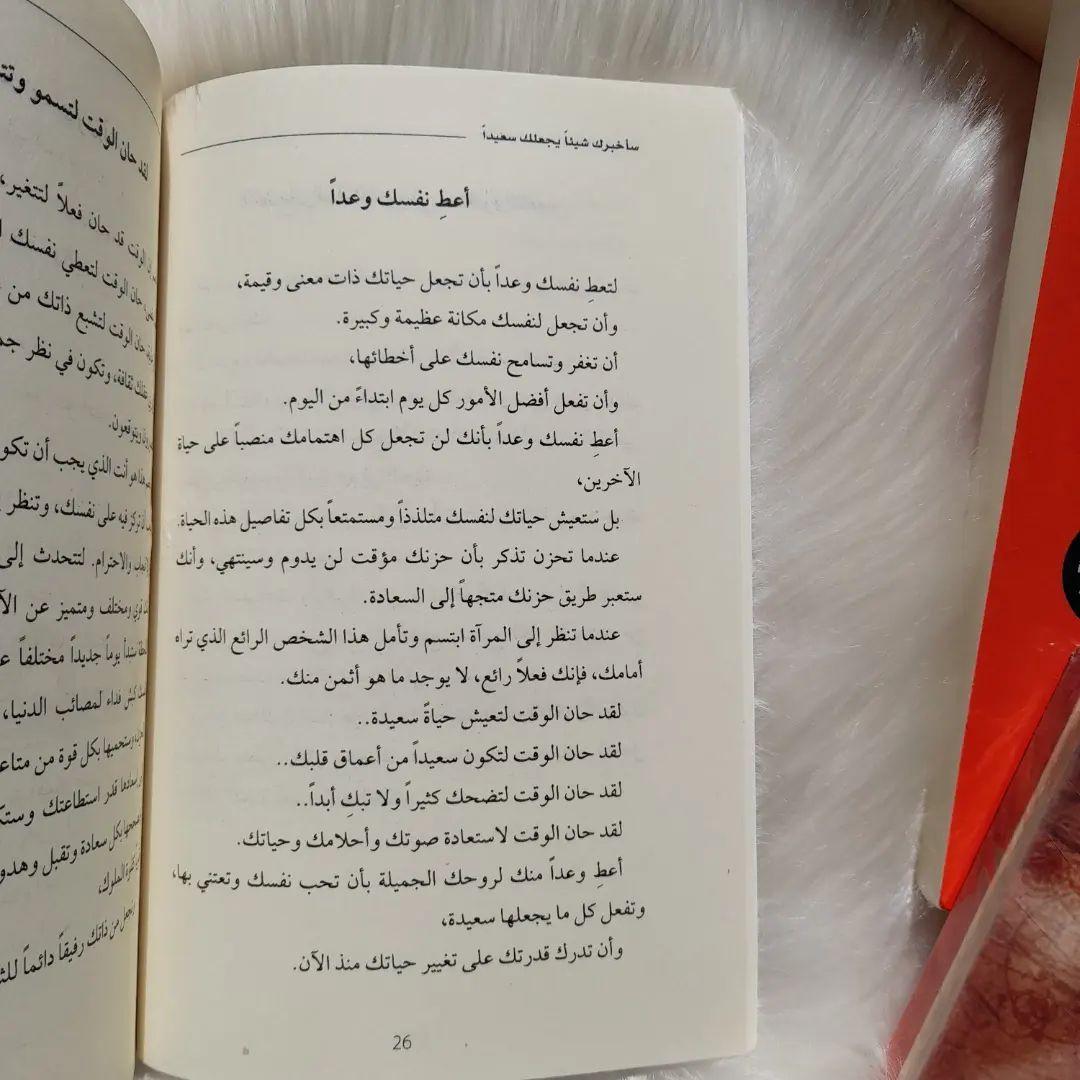 سأخبرك شيئاً يجعلك سعيداً
أعطِ نفسك وعداً
لتعطِ نفسك وعداً بأن تجعل حياتك ذات معنى وقيمة،
وأن تجعل لنفسك مكانة عظيمة وكبيرة.
أن تغفر وتسامح نفسك على أخطائها،
وأن تفعل أفضل الأمور كل يوم ابتداءً من اليوم.
أعطِ نفسك وعداً بأنك لن تجعل كل اهتمامك منصباً على حياة
الآخرين،
بل ستعيش حياتك لنفسك متلذذاً ومستمتعاً بكل تفاصيل هذه الحياة.
عندما تحزن تذكر بأن حزنك مؤقت لن يدوم وسينتهي، وأنك
ستعبر طريق حزنك متجهاً إلى السعادة.
عندما تنظر إلى المرآة ابتسم وتأمل هذا الشخص الرائع الذي تراه
أمامك، فإنك فعلاً رائع، لا يوجد ما هو أثمن منك.
لقد حان الوقت لتعيش حياةً سعيدة..
لقد حان الوقت لتكون سعيداً من أعماق قلبك..
لقد حان الوقت لتضحك كثيراً ولا تبكِ أبداً..
لقد حان الوقت لاستعادة صوتك وأحلامك وحياتك.
أعطِ وعداً منك لروحك الجميلة بأن تحب نفسك وتعتني بها،
وتفعل كل ما يجعلها سعيدة،
وأن تدرك قدرتك على تغيير حياتك منذ الآن.
26
لقد حان الوقت لتسمو
الوقت قد حان فعلاً لتتغير،
حان الوقت لتعطي نفسك
حان الوقت لتشبع ذاتك من
ثقافة، وتكون في نظر
ويتوقعون.
هذا هو أنت الذي يجب أن
تركز فيه على نفسك، وتنظر
والاحترام. لتتحدث إلى
قوي ومختلف ومتميز عن
ستبدأ يوماً جديداً مختلفاً
كبش فداء لمصائب الدنيا،
وستحميها بكل قوة من
قدر استطاعتك
بكل سعادة وتقبل
الملوك،
من ذاتك رفيقاً دائماً